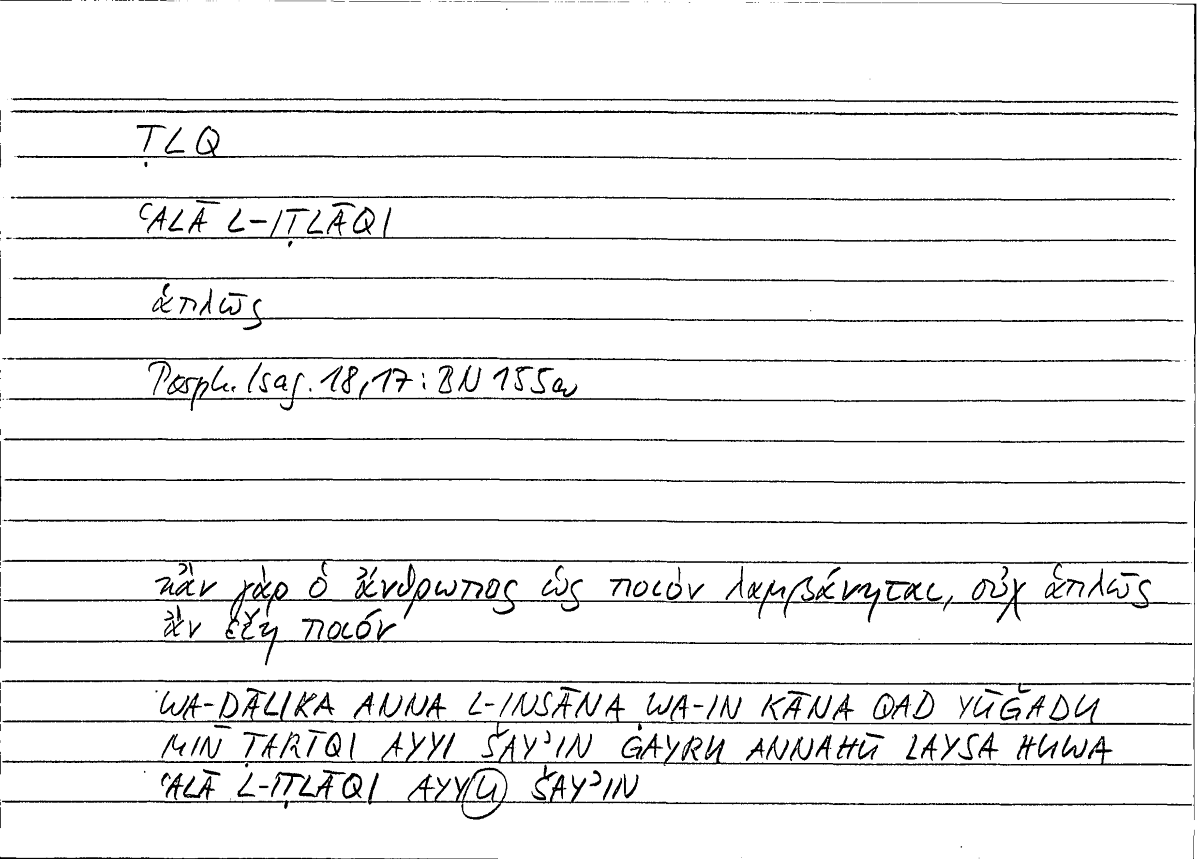 ṬLQ
ʿALĀ L-IṬLĀQI
ἁπλῶς
Porph. Isag. 18,17: BN 155a
κἂν γὰρ ὁ ἄνθρωπος ὡς ποιὸν λαμβάνηται, οὐχ ἁπλῶς
ἂν εἴη ποιόν
WA-ḎĀLIKA ANNA L-INSĀNA WA-IN KĀNA QAD YŪǦADU
MIN ṬARĪQI AYYI ŠAYʾIN ĠAYRU ANNAHŪ LAYSA HUWA
ʿALĀ L-IṬLĀQI AYYU ŠAYʾIN